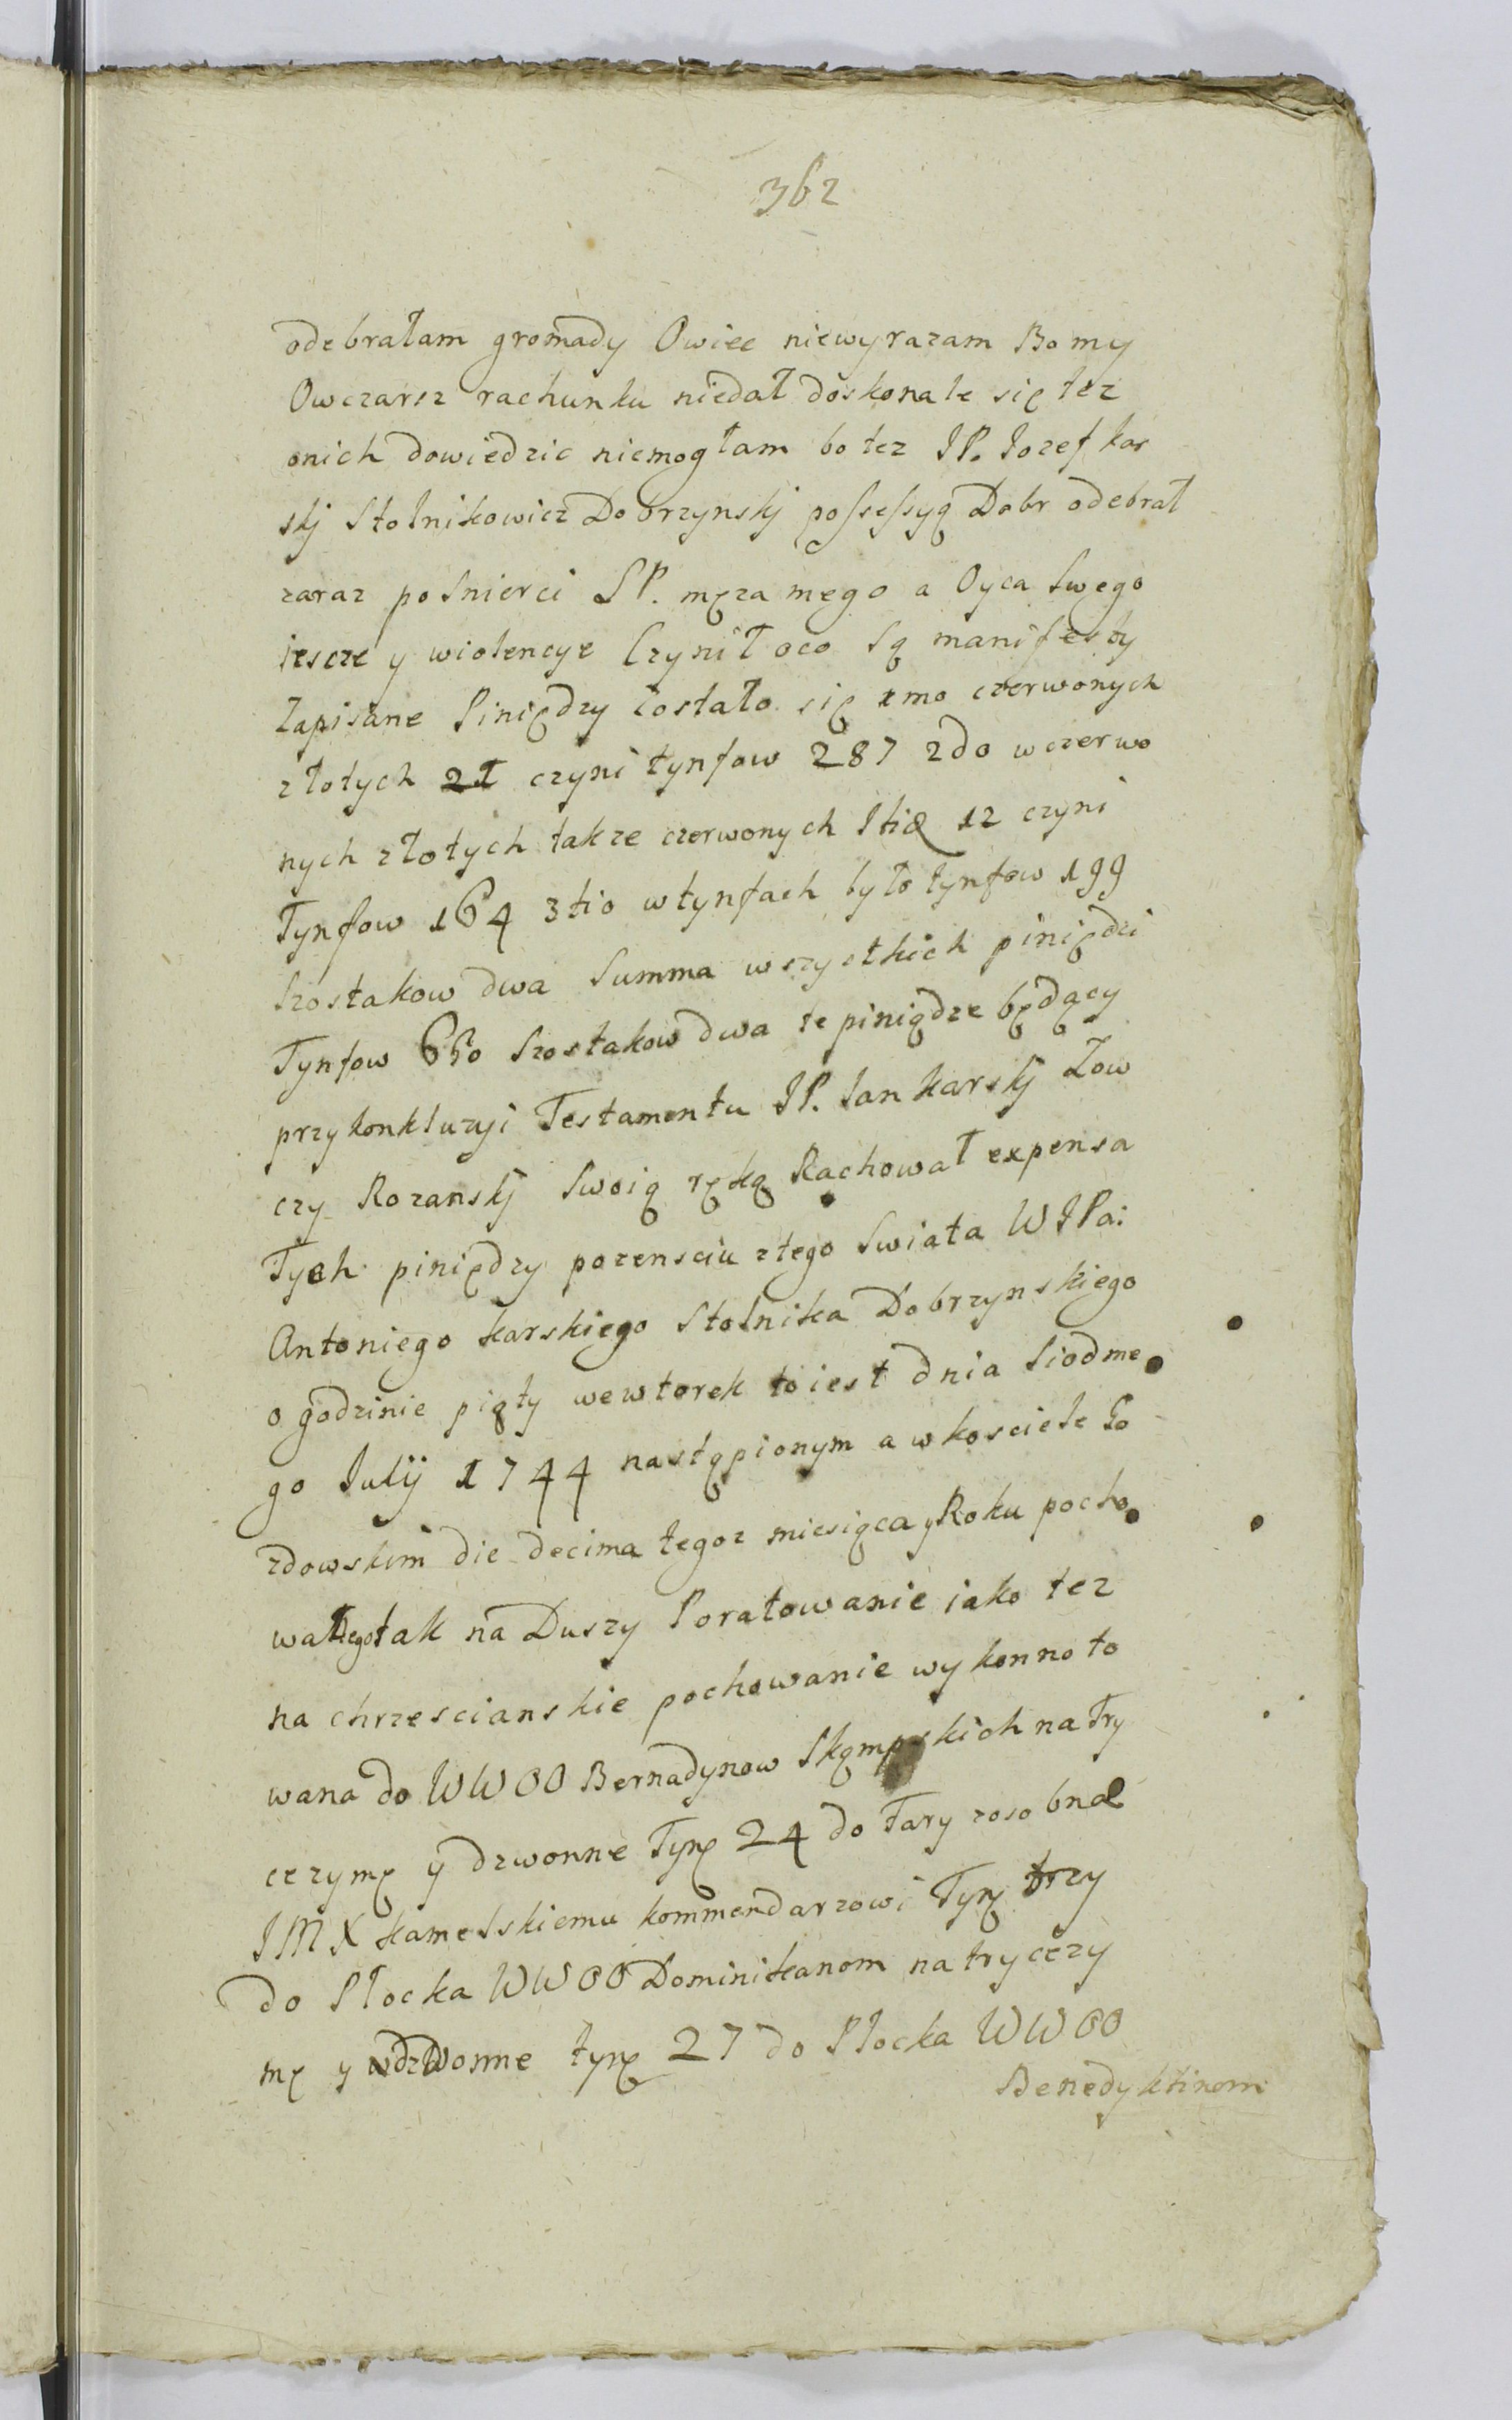 362
odebrałam gromady Owiec niewyrazam Bo my
Owczarsz rachunku niedał doskonale się tez
onich dowiedzic niemogłam bo tez JP. Jozef kar
skj Stolnikowicz Dobrzynskj possessyą Dobr odebrał
zaraz poSmierci SP. męza mego a Oyca Swego
iescze y wiolencye Czynił oco Są manifesty
Zapisane Piniędzy zostało się 1mo czerwonych
złotych 21 czyni tynfow 287 2do wczerwo
nych złotych takze czerwonych 12 czyni
Tynfow 164 3tio wtynfach było tynfow 199
Szostakow dwa Summa wszystkich piniędzi
Tynfow 650 Szostakow dwa te piniądze będący
przy konkluzyi Testamentu JP. Jan Karskj Łow
czy Rozanskj Swoią ręką Rachował expensa
Tych piniędzy pozensciu ztego Swiata WJPa:
Antoniego karskiego Stolnika Dobrzynskiego
o godzinie piąty wewtorek to iest dnia Siodme
go Julij 1744 nastąpionym a wkosciele Go
zdowskim die decima tegoz miesiąca y Roku pocho
wałego tak na Duszy Poratowanie iako tez
na chrzescianskie pochowanie wykonnoto
wana do WWOO Bernadynow Skąmpskich na Try
cezymę y dzwonne Tynę 24 do Fary zosobna
JMX kamelskiemu kommendarzowi Tynę trzy
do Płocka WWOO Dominikanom na trycezy
mę y dzwonne tynę 27 do Płocka WWOO
Benedyktinom